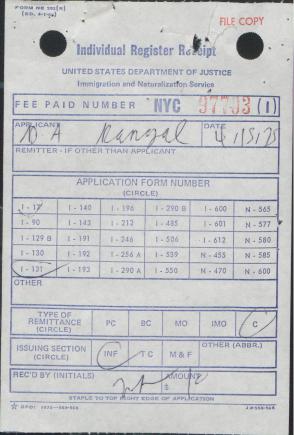 FORM NO 202(R)
FILE COPY
Individual Register Receipt
UNITED STATES DEPARTMENT OF JUSTICE
Immigration and Naturalization Service
FEE PAID NUMBER NYC 97703 (1)
APPLICANT DATE
REMITTER - IF OTHER THAN APPLICANT
APPLICATION FORM NUMBER
(CIRCLE)
I - 17 I - 140 I - 196 I - 290 B I - 600 N - 565
I - 90 I - 143 I - 212 I - 485 I - 601 N - 577
I - 129 B I - 191 I - 246 I - 506 I - 612 N - 580
I - 130 I - 192 I - 256 A I - 539 N - 455 N - 585
I - 131 I - 193 I - 290 A I - 550 N - 470 N - 600
OTHER
TYPE OF
REMITTANCE
(CIRCLE)
PC BC MO IMO C
ISSUING SECTION
(CIRCLE)
INF T C M & F
OTHER (ABBR.)
REC'D BY (INITIALS) AMOUNT
$
STAPLE TO TOP RIGHT EDGE OF APPLICATION